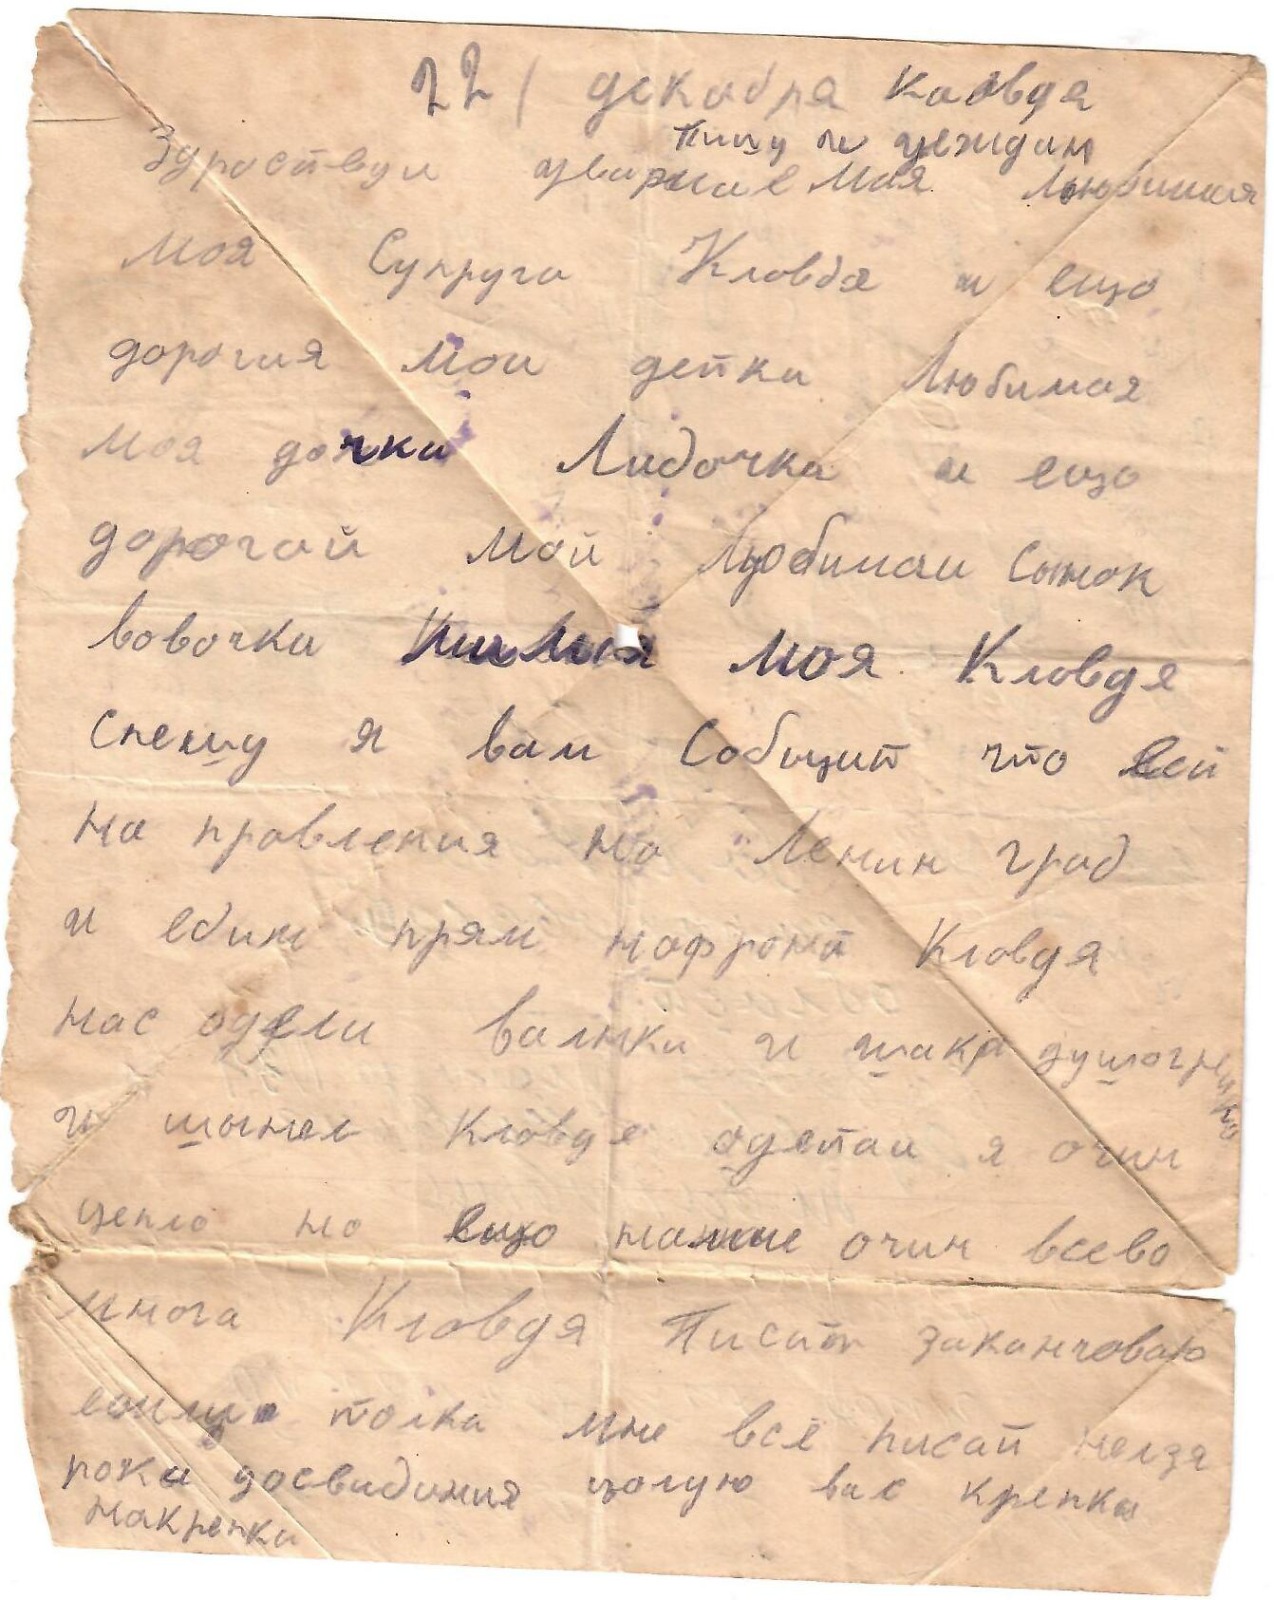 22 / декабря Кловдя
пишу
Здроствуи моя любимая
моя Супруга Кловдя и ещо
дорогия мои детки Любимая
моя дочка Лидочка и ещо
дорогой мой Любимаи Сынок
вовочка моя Кловдя
спешу я вам Собщит что
на провления на Ленин град
и едим прям нафронт Кловдя
нас одели валики и душогрейка
и шынел Кловдя одетаи я очин
цепло но ещо очин всево
многа Кловдя Писат заканчоваю
толка мне всё писат нелзя
пока досвидиния цолую вас крепка
накрепка